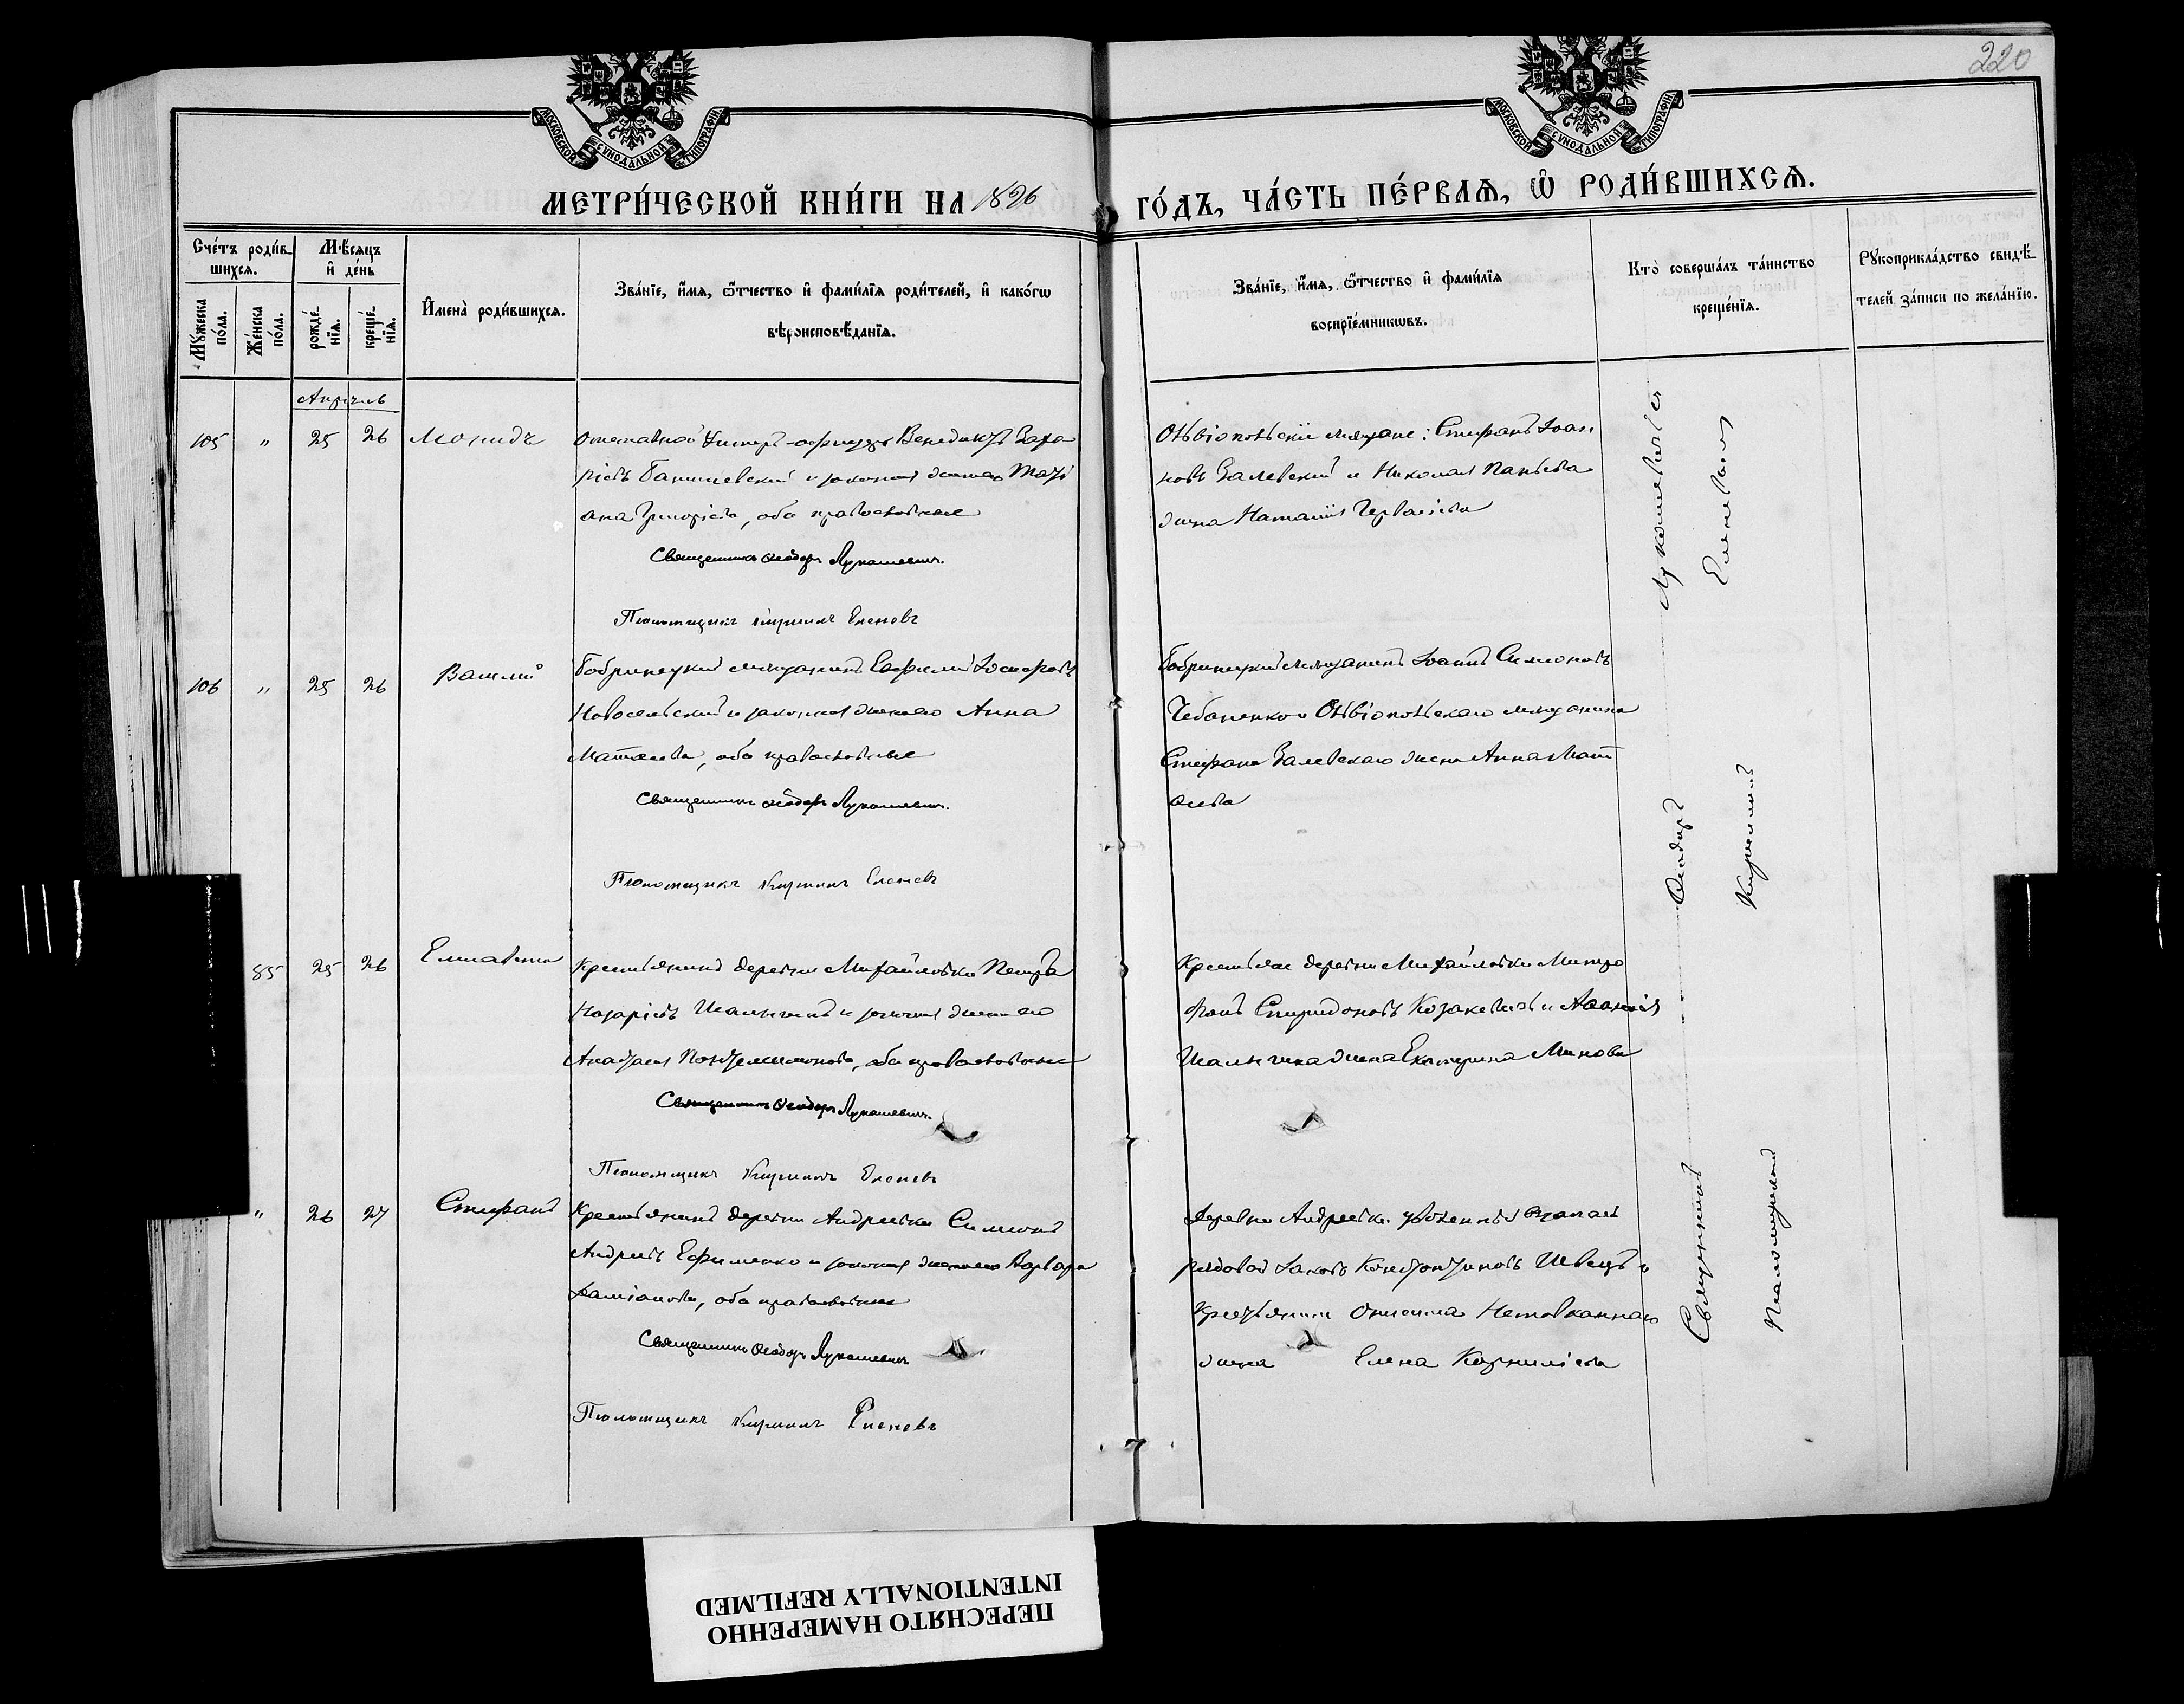 220
МОСКОВСКОЙ СѴНОДАЛЬНОЙ ТИПОГРАФІИ
МОСКОВСКОЙ СѴНОДАЛЬНОЙ ТИПОГРАФІИ
МЕТРИ́ЧЕСКОЙ КНИ́ГИ НА 1896 ГО́ДЪ, ЧА́СТЬ ПЕ́РВАѦ, Ѿ РОДИ́ВШИХСѦ.
Сче́тъ роди́в-
шихсѧ.
Мꙋ́жеска по́ла.
Же́нска по́ла.
Мѣ́сѧцъ
и҆ де́нь
рожде́-
нїѧ.
креще́-
нїѧ.
И҆мена̀ роди́вшихсѧ.
Зва́нїе, и҆́мѧ, ѻ҆́тчество и҆ фами́лїѧ роди́телей, и҆ како́гѡ
вѣроисповѣ́данїѧ.
Зва́нїе, и҆́мѧ, ѻ҆́тчество и҆ фами́лїѧ
воспрїе́мникѡвъ.
Кто̀ соверша́лъ та́инство
креще́нїѧ.
Рꙋкоприкла́дство свидѣ́-
телей за́писи по жела́нїю.
Апрѣль
105 " 25 26
Отставной Унтеръ-офицеръ Венедиктъ Заха
ріевъ Банишевскій и законная жена его Тать
ана Григоріева, оба православные
Священникъ Ѳеодоръ Лукашевичъ.
Псаломщикъ Кириллъ Еленевъ
Ольвіопольскіе мѣщане: Стефанъ Іоан
новъ Залевскій и Николая
жена Наталія Герасіева
106 " 25 26 Василій
Бобринецкій мѣщанинъ Евфимій Іосифовъ
Новосельскій и законная жена его Анна
Матѳеева, оба православные
Священникъ Ѳеодоръ Лукашевичъ.
Псаломщикъ Кириллъ Еленевъ
Бобринецкій мѣщанинъ Іоаннъ Симеоновъ
Чебаненко и Ольвіопольскаго мѣщанина
Стефана Залевскаго жена Анна Мат
ѳеева
85 25 26 Елисавета
Крестьянинъ деревни Михайловки Петръ
Назаріевъ Шалыгинъ и законная жена его
Анастасія Пантелеимонова, оба православные
Священникъ Ѳеодоръ Лукашевичъ.
Псаломщикъ Кириллъ Еленевъ
Крестьяне деревни Михайловки Митро
фанъ Спиридоновъ Козакевичъ и Аѳанасія
Шалыгина жена Екатерина Минова
" 26 27 Стефанъ
Крестьянинъ деревни Андреевки Симеонъ
Андреевъ Ефименко и законная жена его Варвара
Даміанова, оба православные
Священникъ Ѳеодоръ Лукашевичъ
Псаломщикъ Кириллъ Еленевъ
Деревни Андреевки уволенный въ запасъ
рядовой Іаковъ Константиновъ Швецъ и
крестьянина Онисима
жена Елена Корниліева
Священникъ Ѳеодоръ Лукашевичъ
Псаломщикъ Кириллъ Еленевъ
ПЕРЕСНЯТО НАМЕРЕННО
INTENTIONALLY REFILMED